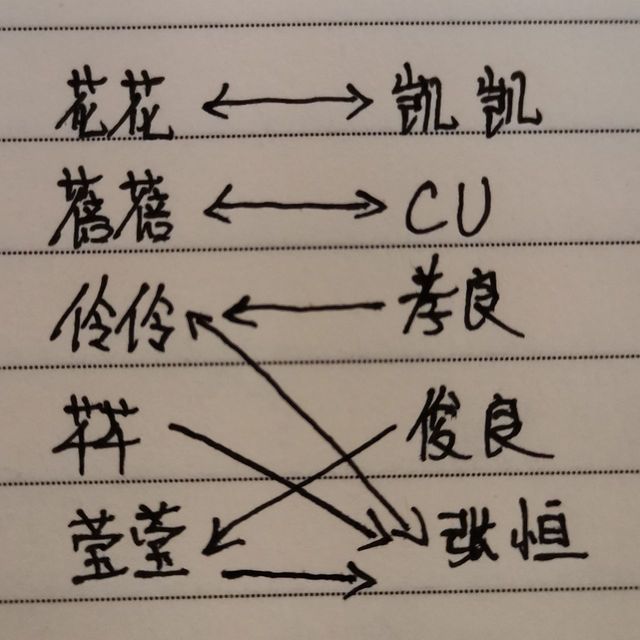 花花 ↔ 凯凯
蓓蓓 ↔ CU
伶伶 ← 孝良
俊良
莹莹 → 张恒